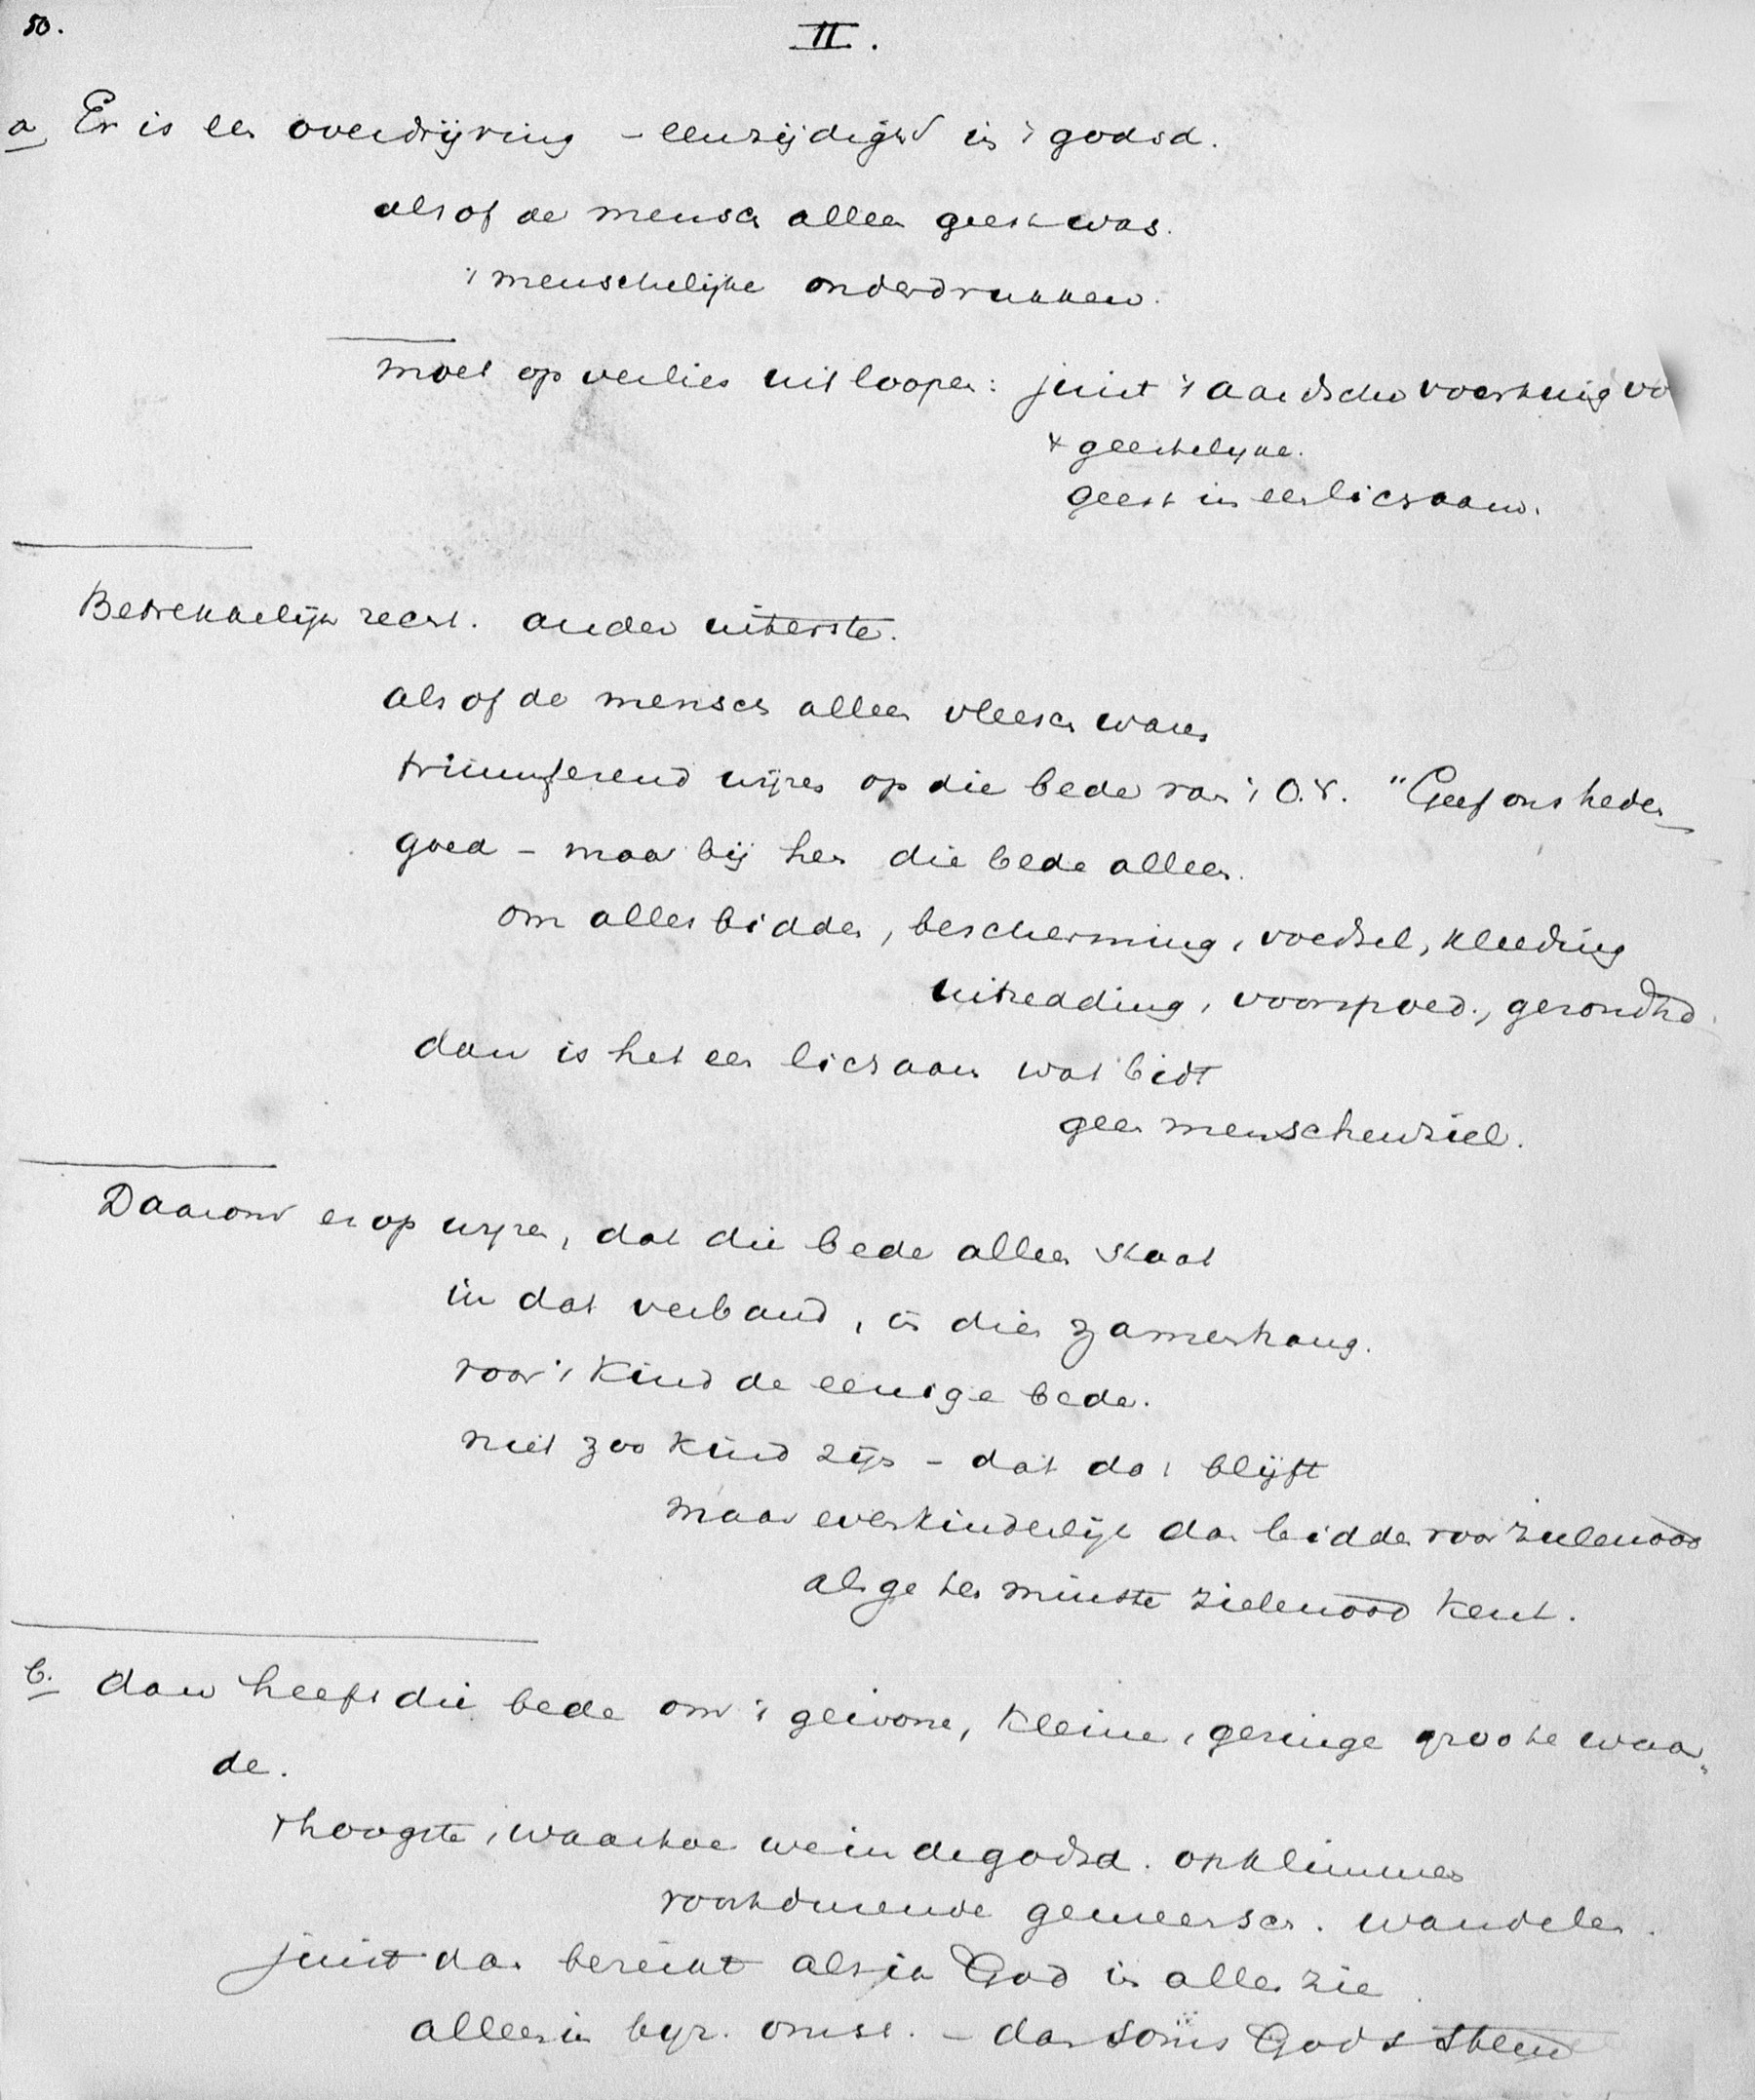 50.
II.
a Er is een overdrijving – eenzijdighd in 't godsd.
alsof de mensch alleen geest was.
't menschelijke onderdrukken.
moet op verlies uitloopen: juist 't aardsche voertuig vo
't geestelijke.
geest in een lichaam.
Betrekkelijk recht. ander uiterste.
alsof de mensch alleen vleesch ware,
triumferend wijzen op die bede van 't O.V. "Geef ons heden
goed – maar bij hen die bede alleen.
om alles bidden, bescherming, voedsel, kleeding
uitredding, voorspoed, gezondhd
dan is het een lichaam wat bidt
geen menschenziel.
Daarom er op wijzen, dat die bede alleen staat
in dat verband, in dien zamenhang.
voor 't kind de eenige bede.
niet zoo kind zijn – dat dat blijft
maar evenkinderlijk dan bidden voor zielenood
als ge ten minste zielenood kent.
b. dan heeft die bede om 't gewone, kleine, geringe groote waar„
de.
't hoogste, waartoe we in de godsd. opklimmen
voortdurende gemeensch. wandelen.
juist dan bereikt als ik God in alles zie
alleen in byz. omst. – dan soms Gods stem